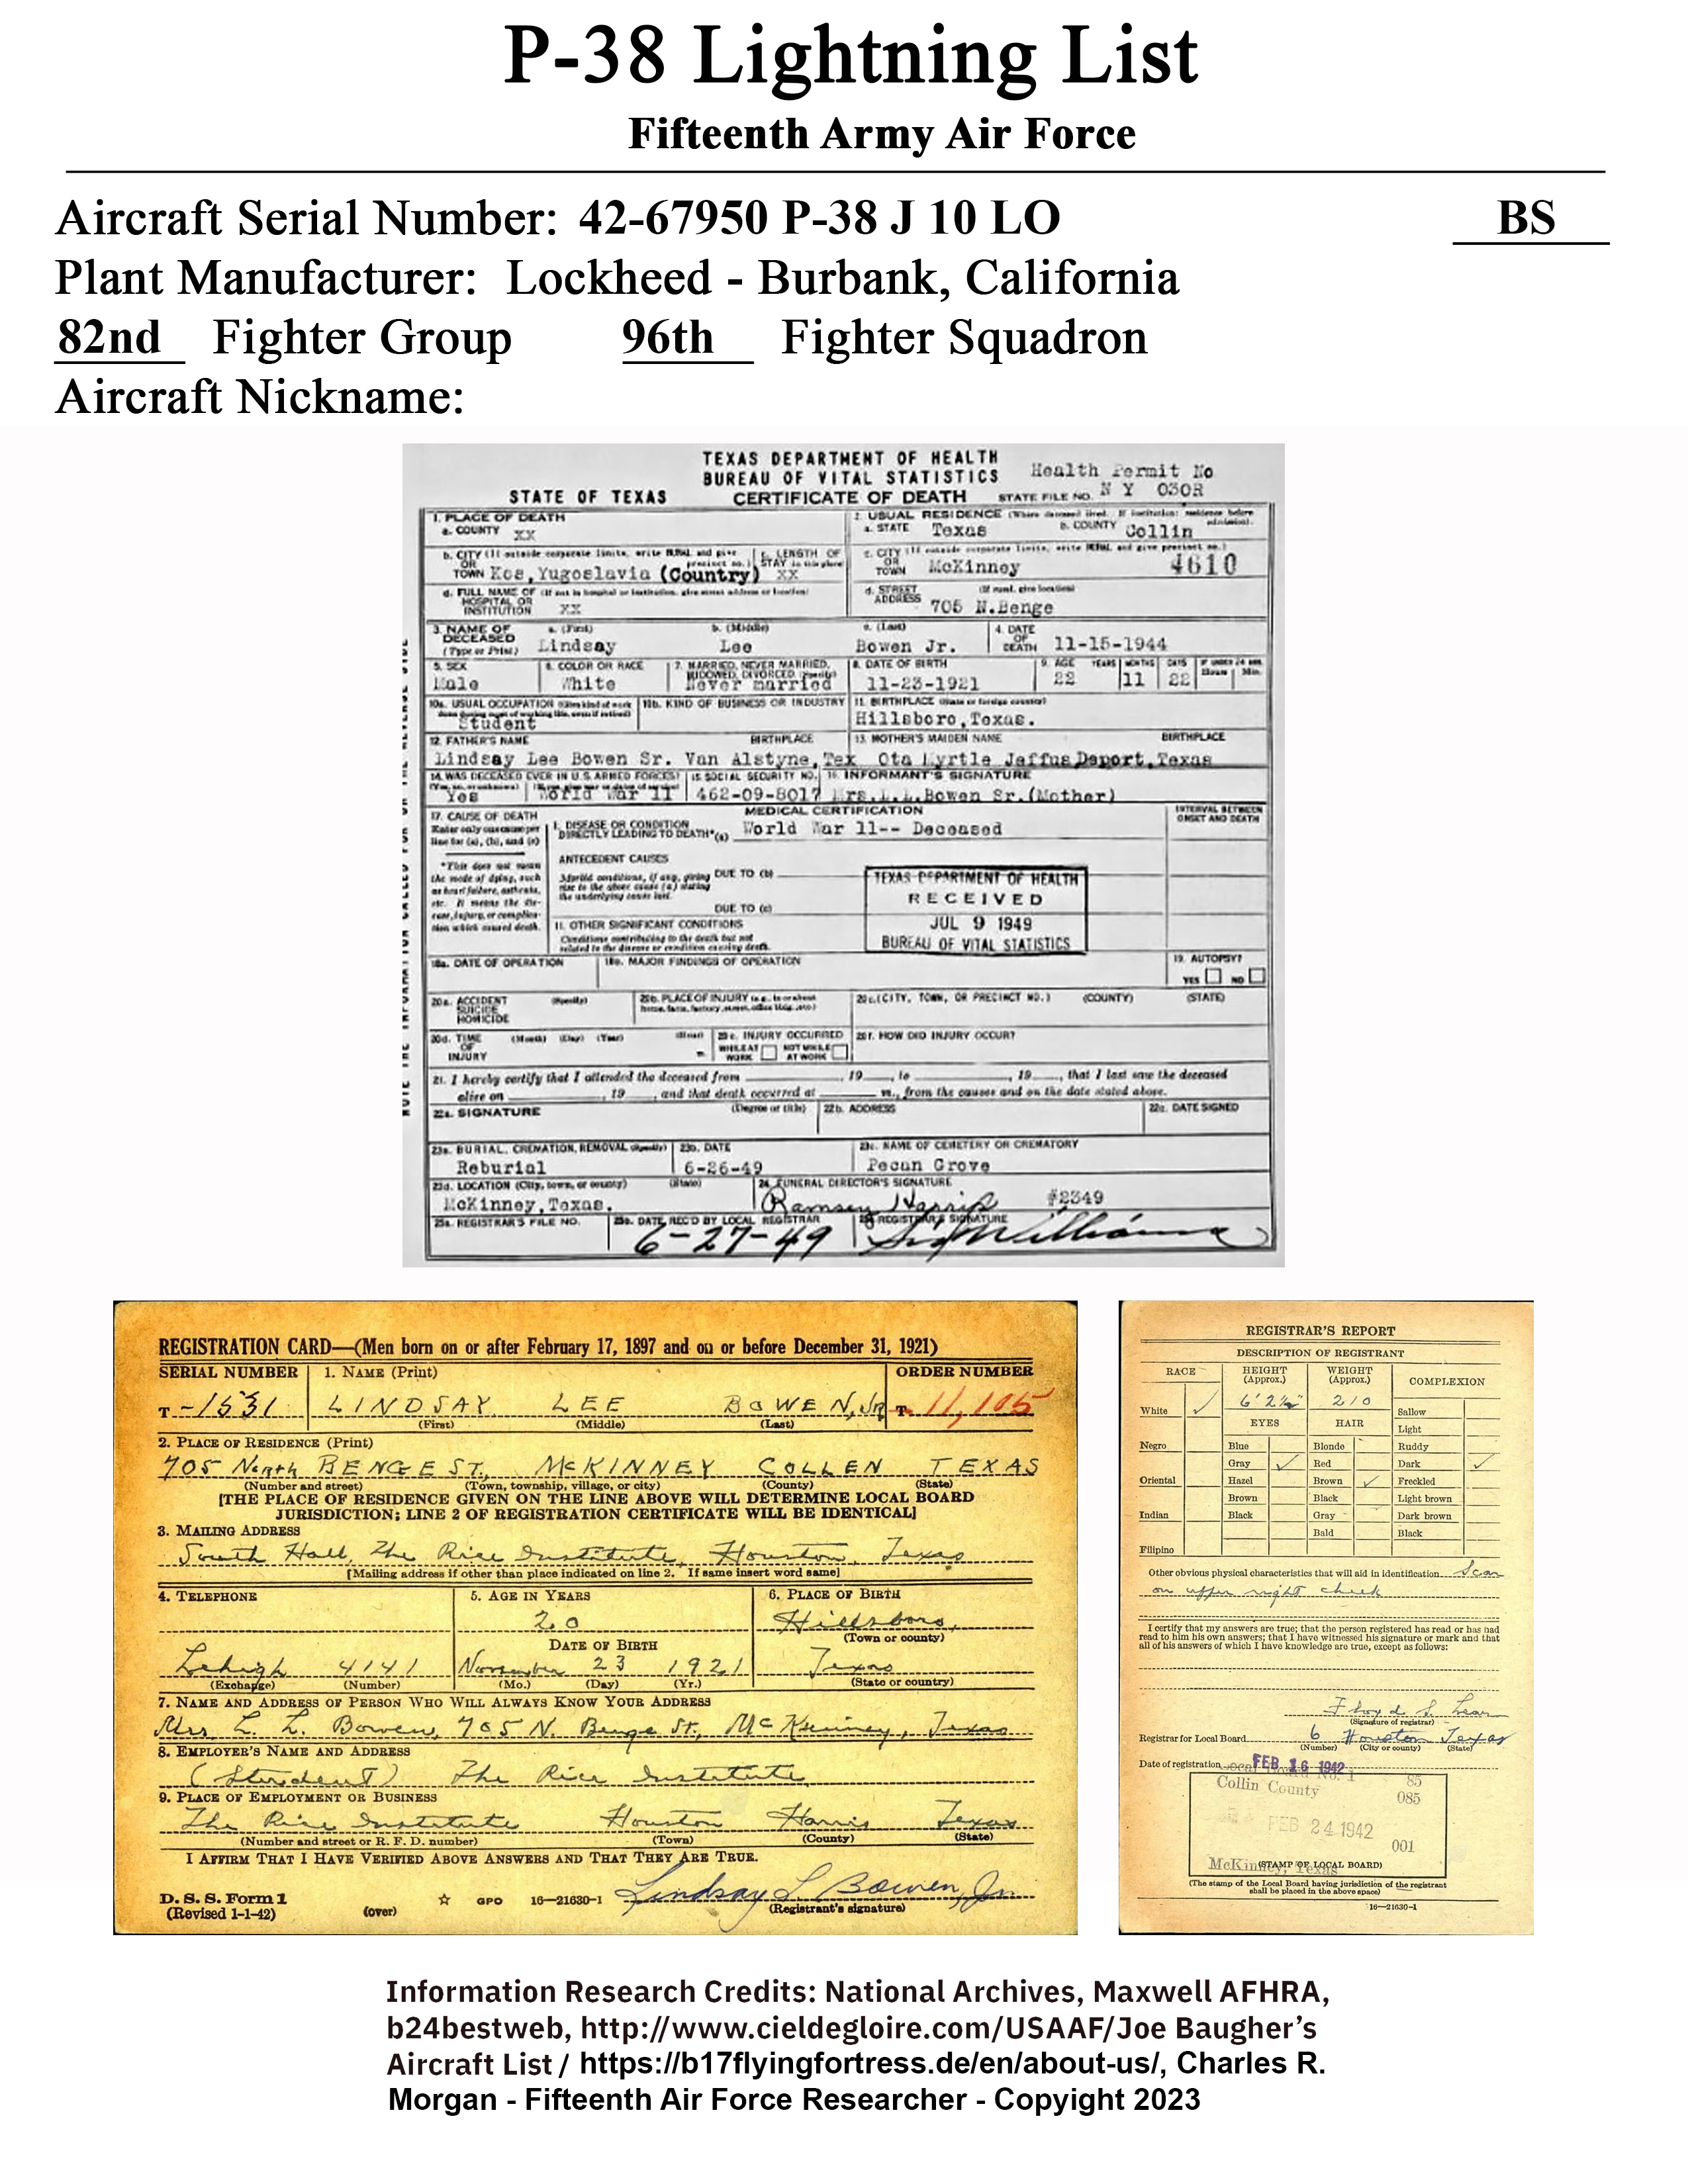 P-38 Lightning List
Fifteenth Army Air Force
Aircraft Serial Number: 42-67950 P-38 J 10 LO BS
Plant Manufacturer: Lockheed - Burbank, California
82nd Fighter Group 96th Fighter Squadron
Aircraft Nickname:
TEXAS DEPARTMENT OF HEALTH
BUREAU OF VITAL STATISTICS Health Permit No
STATE OF TEXAS CERTIFICATE OF DEATH STATE FILE NO. N Y 030R
1. PLACE OF DEATH 2. USUAL RESIDENCE (Where deceased lived. If institution: residence before admission).
a. COUNTY XX a. STATE Texas b. COUNTY Collin
b. CITY (If outside corporate limits, write RURAL and give precinct no.) c. LENGTH OF STAY (in this place) c. CITY (If outside corporate limits, write RURAL and give precinct no.)
OR TOWN Kos, Yugoslavia (Country) XX OR TOWN McKinney 4610
d. FULL NAME OF (If not in hospital or institution, give street address or location) d. STREET (If rural, give location)
HOSPITAL OR INSTITUTION XX ADDRESS 705 N.Benge
3. NAME OF DECEASED a. (First) b. (Middle) c. (Last) 4. DATE OF DEATH 11-15-1944
(Type or Print) Lindsay Lee Bowen Jr.
5. SEX 6. COLOR OR RACE 7. MARRIED, NEVER MARRIED, WIDOWED, DIVORCED (Specify) 8. DATE OF BIRTH 9. AGE YEARS MONTHS DAYS IF UNDER 24 HRS. Hours Min.
Male White Never married 11-23-1921 22 11 22
10a. USUAL OCCUPATION (Give kind of work done during most of working life, even if retired) 10b. KIND OF BUSINESS OR INDUSTRY 11. BIRTHPLACE (State or foreign country)
Student Hillsboro, Texas.
12. FATHER'S NAME BIRTHPLACE 13. MOTHER'S MAIDEN NAME BIRTHPLACE
Lindsay Lee Bowen Sr. Van Alstyne, Tex Ota Myrtle Jeffus Deport, Texas
14. WAS DECEASED EVER IN U.S. ARMED FORCES? 15. SOCIAL SECURITY NO. 16. INFORMANT'S SIGNATURE
Yes World War 11 462-09-8017 Mrs. L. L. Bowen Sr. (Mother)
17. CAUSE OF DEATH MEDICAL CERTIFICATION INTERVAL BETWEEN ONSET AND DEATH
Enter only one cause per line for (a), (b), and (c)
1. DISEASE OR CONDITION DIRECTLY LEADING TO DEATH*(a) World War 11-- Deceased
*This does not mean the mode of dying, such as heart failure, asthenia, etc. It means the disease, injury, or complication which caused death.
ANTECEDENT CAUSES
Morbid conditions, if any, giving rise to the above cause (a) stating the underlying cause last. DUE TO (b)
DUE TO (c)
11. OTHER SIGNIFICANT CONDITIONS
Conditions contributing to the death but not related to the disease or condition causing death.
TEXAS DEPARTMENT OF HEALTH
RECEIVED
JUL 9 1949
BUREAU OF VITAL STATISTICS
18a. DATE OF OPERATION 18b. MAJOR FINDINGS OF OPERATION 19. AUTOPSY?
YES NO
20a. ACCIDENT SUICIDE HOMICIDE (Specify) 20b. PLACE OF INJURY (e.g., in or about home, farm, factory, street, office bldg., etc.) 20c. (CITY, TOWN, OR PRECINCT NO.) (COUNTY) (STATE)
20d. TIME OF INJURY (Month) (Day) (Year) (Hour) m. 20e. INJURY OCCURRED WHILE AT WORK NOT WHILE AT WORK 20f. HOW DID INJURY OCCUR?
21. I hereby certify that I attended the deceased from , 19 , to , 19 , that I last saw the deceased
alive on , 19 , and that death occurred at m., from the causes and on the date stated above.
22a. SIGNATURE (Degree or title) 22b. ADDRESS 22c. DATE SIGNED
23a. BURIAL, CREMATION, REMOVAL (Specify) 23b. DATE 23c. NAME OF CEMETERY OR CREMATORY
Reburial 6-26-49 Pecan Grove
23d. LOCATION (City, town, or county) (State) 24. FUNERAL DIRECTOR'S SIGNATURE
McKinney, Texas. Ramsey Harris #2349
25a. REGISTRAR'S FILE NO. 25b. DATE REC'D BY LOCAL REGISTRAR 25c. REGISTRAR'S SIGNATURE
6-27-49 Williams
REGISTRATION CARD—(Men born on or after February 17, 1897 and on or before December 31, 1921)
SERIAL NUMBER 1. NAME (Print) ORDER NUMBER
T -1531 LINDSAY LEE BOWEN, JR. T 11,105
(First) (Middle) (Last)
2. PLACE OF RESIDENCE (Print)
705 North BENGE ST., MCKINNEY COLLEN TEXAS
(Number and street) (Town, township, village, or city) (County) (State)
[THE PLACE OF RESIDENCE GIVEN ON THE LINE ABOVE WILL DETERMINE LOCAL BOARD
JURISDICTION; LINE 2 OF REGISTRATION CERTIFICATE WILL BE IDENTICAL]
3. MAILING ADDRESS
South Hall, The Rice Institute, Houston, Texas
[Mailing address if other than place indicated on line 2. If same insert word same]
4. TELEPHONE 5. AGE IN YEARS 6. PLACE OF BIRTH
20 Hillsboro,
DATE OF BIRTH (Town or county)
Lehigh 4141 November 23 1921 Texas
(Exchange) (Number) (Mo.) (Day) (Yr.) (State or country)
7. NAME AND ADDRESS OF PERSON WHO WILL ALWAYS KNOW YOUR ADDRESS
Mrs. L. L. Bowen, 705 N. Benge St., McKinney, Texas
8. EMPLOYER'S NAME AND ADDRESS
(Student) The Rice Institute
9. PLACE OF EMPLOYMENT OR BUSINESS
The Rice Institute Houston Harris Texas
(Number and street or R. F. D. number) (Town) (County) (State)
I AFFIRM THAT I HAVE VERIFIED ABOVE ANSWERS AND THAT THEY ARE TRUE.
D. S. S. Form 1 GPO 16—21630-1 Lindsay L. Bowen, Jr.
(Revised 1-1-42) (over) (Registrant's signature)
REGISTRAR'S REPORT
DESCRIPTION OF REGISTRANT
RACE HEIGHT (Approx.) WEIGHT (Approx.) COMPLEXION
White ✓ 6' 2½" 210 Sallow
EYES HAIR Light
Negro Blue Blonde Ruddy
Gray ✓ Red Dark ✓
Oriental Hazel Brown ✓ Freckled
Brown Black Light brown
Indian Black Gray Dark brown
Bald Black
Filipino
Other obvious physical characteristics that will aid in identification Scar
on upper right cheek
I certify that my answers are true; that the person registered has read or has had
read to him his own answers; that I have witnessed his signature or mark and that
all of his answers of which I have knowledge are true, except as follows:
Floyd S. Lear
(Signature of registrar)
Registrar for Local Board 6 Houston Texas
(Number) (City or county) (State)
Date of registration FEB 16 1942
Local Board No. 1 85
Collin County 085
FEB 24 1942
001
McKinney, Texas
(STAMP OF LOCAL BOARD)
(The stamp of the Local Board having jurisdiction of the registrant
shall be placed in the above space)
16—21630-1
Information Research Credits: National Archives, Maxwell AFHRA,
b24bestweb, http://www.cieldegloire.com/USAAF/Joe Baugher's
Aircraft List / https://b17flyingfortress.de/en/about-us/, Charles R.
Morgan - Fifteenth Air Force Researcher - Copyright 2023